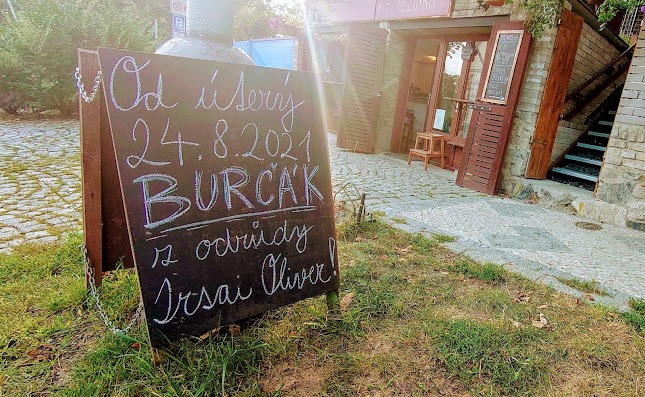 Od úterý
24.8.2021
BURČÁK
z odrůdy
Irsai Oliver!